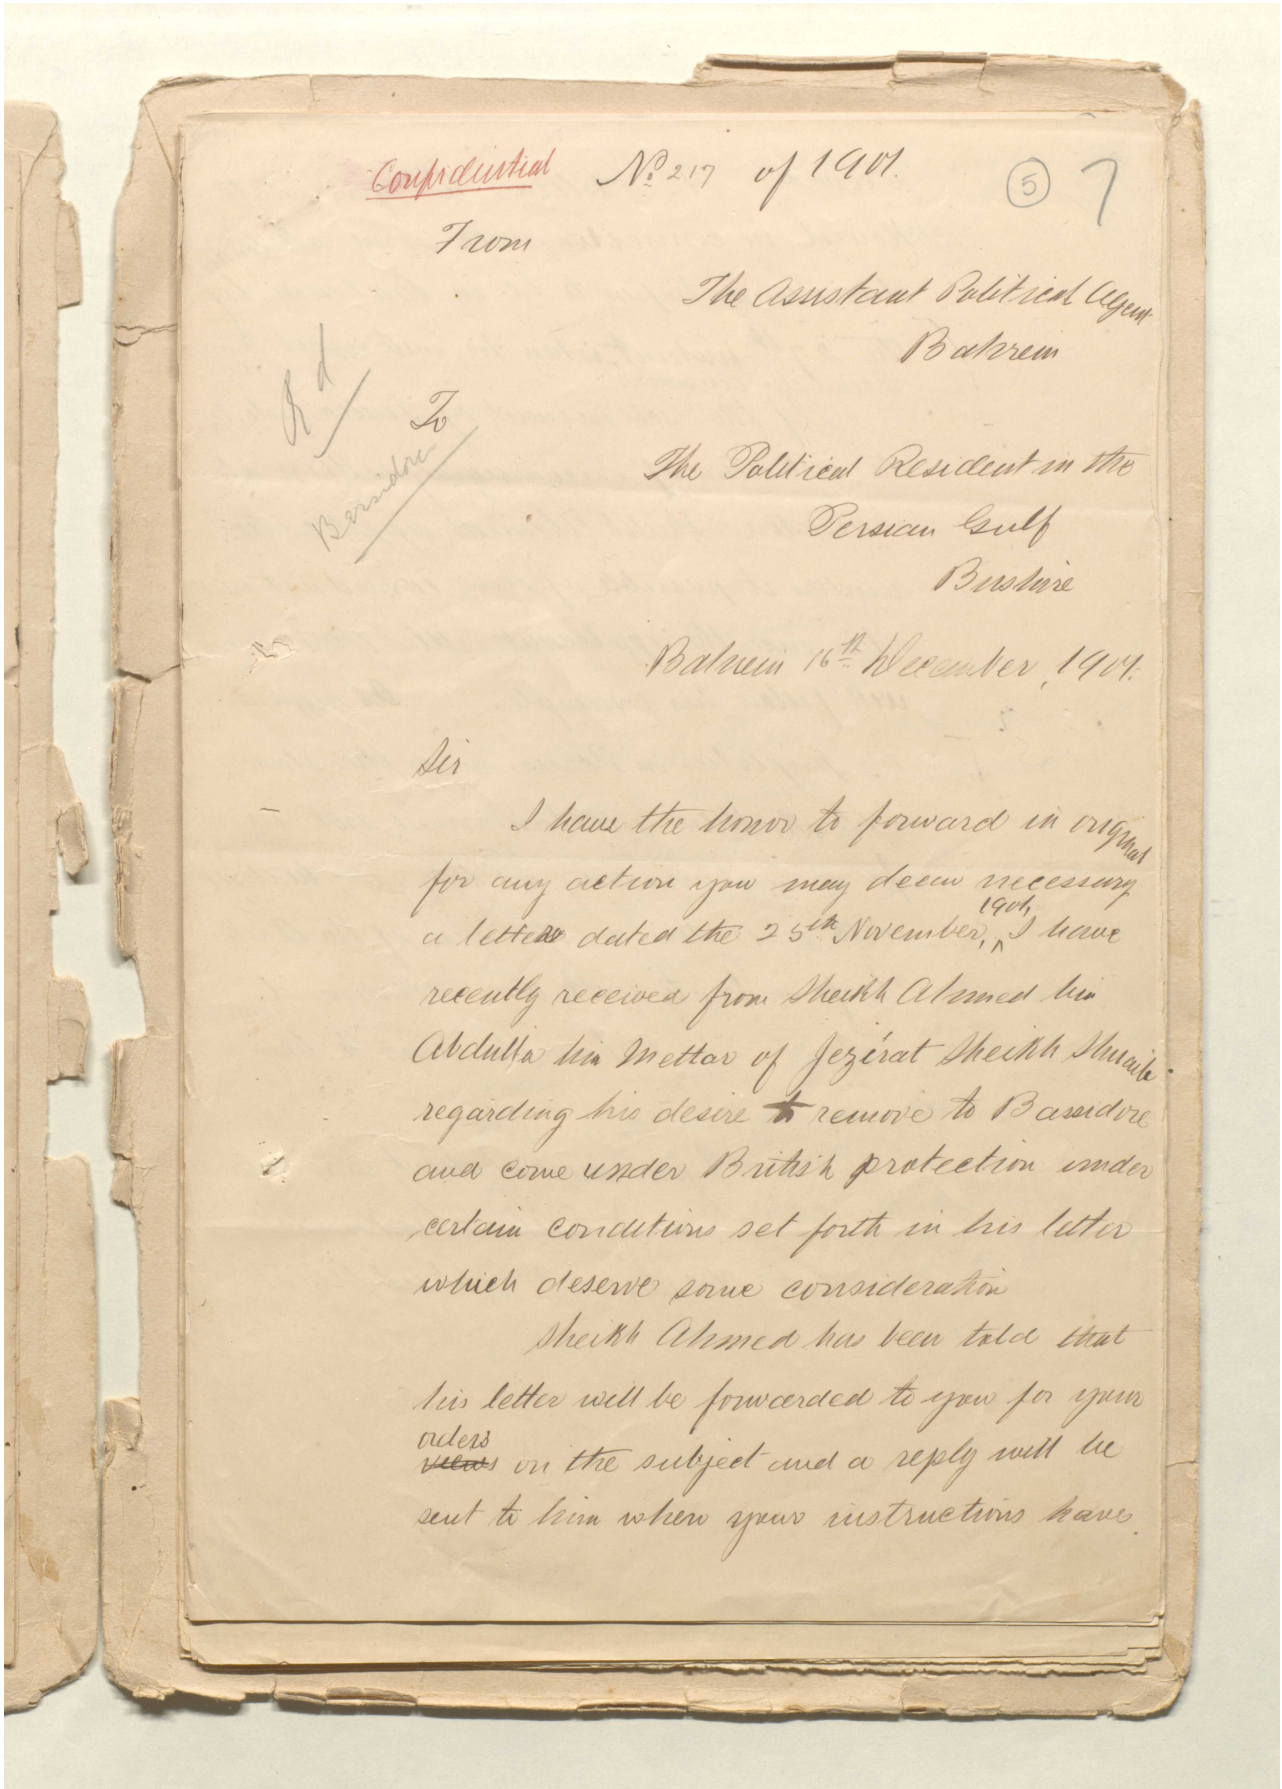 Confidential No 217 of 1901.
5 7
From
The Assistant Political Agent
Bahrein
Rd
To
Bassidore
The Political Resident in the
Persian Gulf
Bushire
Bahrein 16th December, 1901.
Sir
I have the honor to forward in original
for any action you may deem necessary
a letter dated the 25th November, 1901, I have
recently received from Sheikh Ahmed bin
Abdulla bin Mettar of Jezirat Sheikh Shuaib.
regarding his desire to remove to Bassidore
and come under British protection under
certain conditions set forth in his letter
which deserve some consideration
Sheikh Ahmed has been told that
his letter will be forwarded to you for your
orders
views on the subject and a reply will be
sent to him when your instructions have